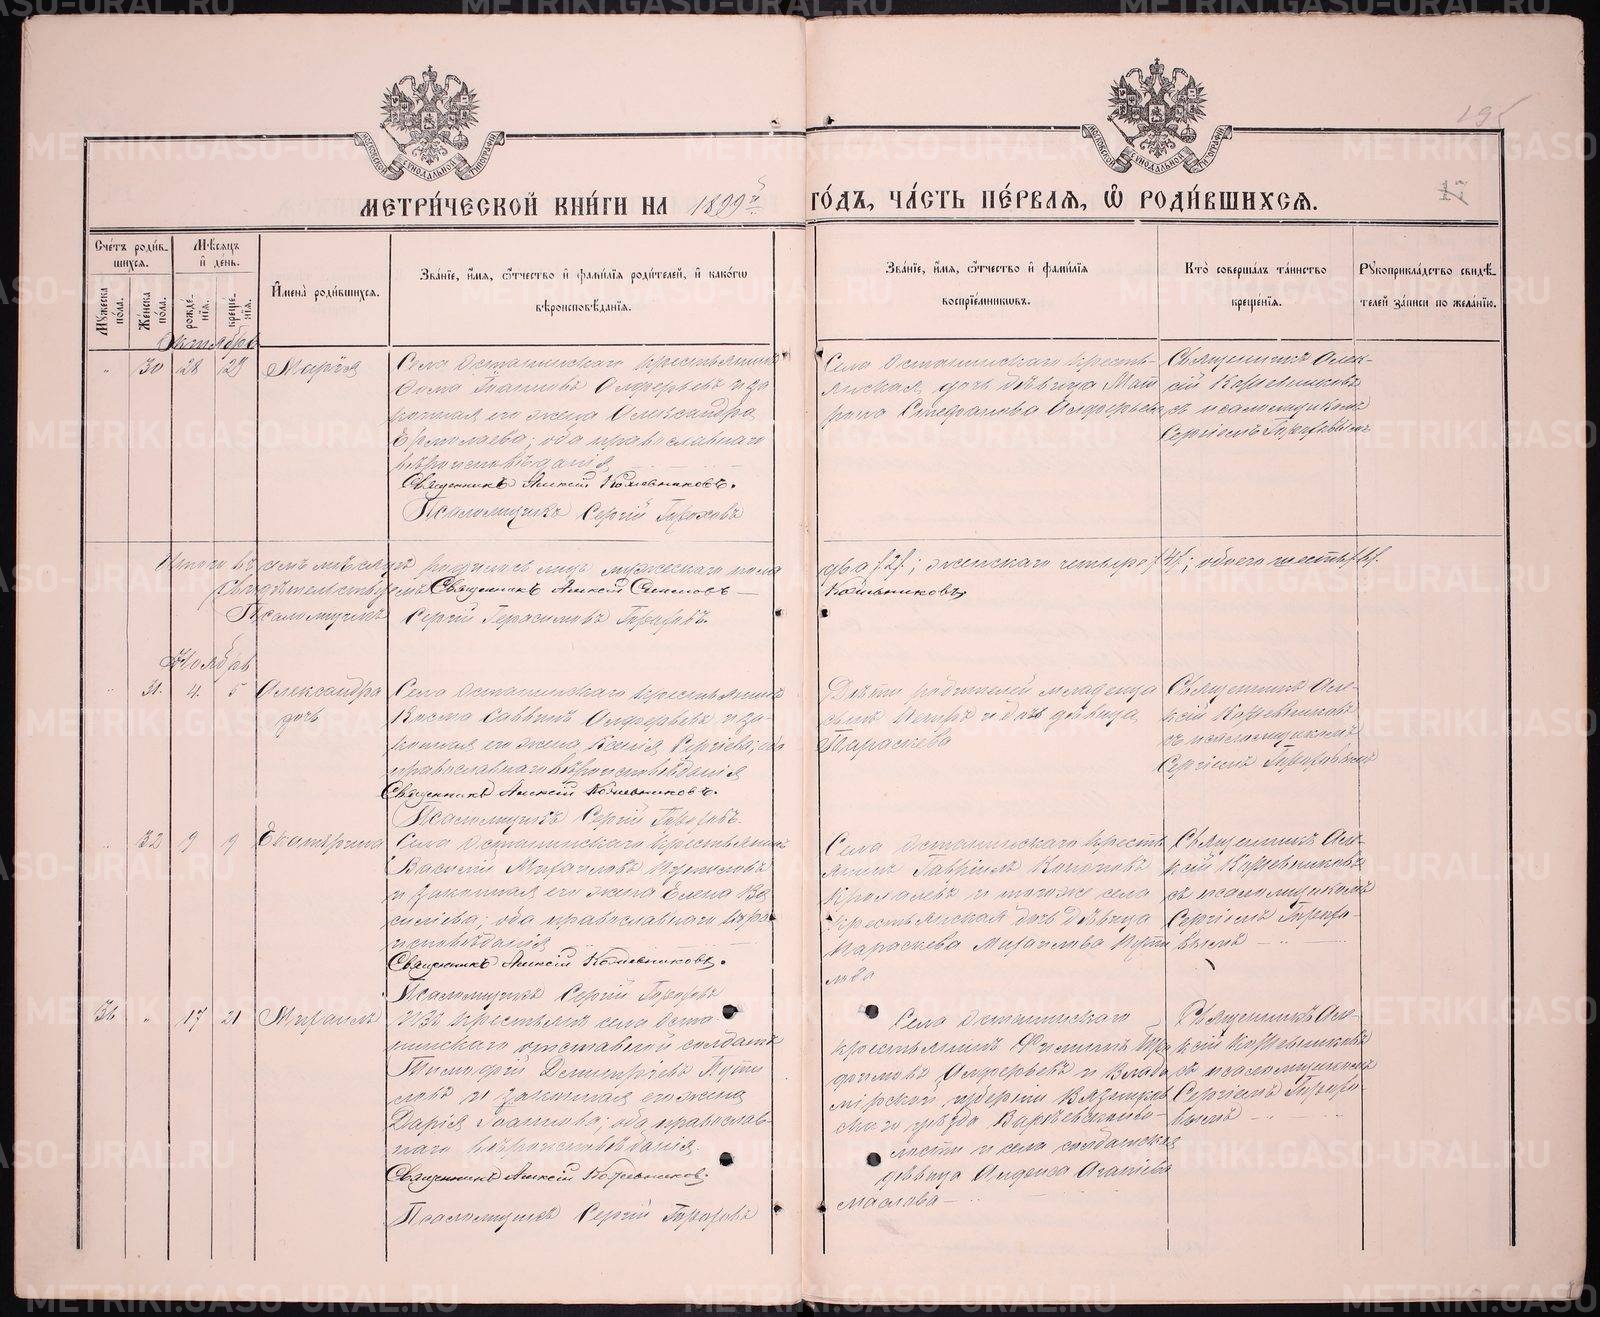 195
17
МЕТРИ́ЧЕСКОЙ КНИ́ГИ НА 1899й ГО́ДЪ, ЧА́СТЬ ПЕ́РВАЯ, Ѽ РОДИ́ВШИХСЯ.
Сче́тъ роди́в-
шихся.
Мꙋжеска по́ла.
Же́нска по́ла.
Мѣ́сяцъ и҆ де́нь.
рожде́-
нїя.
креще́-
нїя.
И҆мена̀ роди́вшихся.
Зва́нїе, и҆́мя, ѻ҆́тчество и҆ фами́лїя роди́телей, и҆ како́гѡ
вѣроисповѣ́данїя.
Зва́нїе, и҆́мя, ѻ҆́тчество и҆ фами́лїя
воспрїе́мникѡвъ.
Кто̀ соверша́лъ та́инство
креще́нїя.
Рꙋкоприкла́дство свидѣ́-
телей за́писи по жела́нїю.
Октябрь
" 30 28 28 Марія
Села Останинскаго крестьянинъ
Ѳома Іоанновъ Алферьевъ и за-
конная его жена Александра
Ермолаева; оба православнаго
вѣроисповѣданія
Священникъ Алексій Кожевниковъ.
Псаломщикъ Сергій Гороховъ
Села Останинскаго кресть-
янская дочь дѣвица Мат
рона Стефанова Алферьева
Священникъ Алек-
сій Кожевниковъ
съ псаломщикомъ
Сергіемъ Гороховымъ
Итого въ семъ мѣсяцѣ родилось лицъ мужескаго пола два /2/; женскаго четыре /4/; обоего шесть /6/.
Свидѣтельствуемъ: Священникъ Алексій Кожевниковъ.
Псаломщикъ Сергій Герасимовъ Гороховъ.
Ноябрь
" 31. 4. 5 Александра
дочь
Села Останинскаго крестьянинъ
Косма Саввинъ Алферьевъ и за-
конная его жена Ксенія Сергіева; оба
православнаго вѣроисповѣданія
Священникъ Алексій Кожевниковъ.
Псаломщикъ Сергій Гороховъ.
Дѣти родителей младенца
сынъ Петръ и дочь дѣвица
Параскева
Священникъ Але-
ксій Кожевниковъ
съ псаломщикомъ
Сергіемъ Гороховымъ
" 32 9 9 Екатерина
Села Останинскаго крестьянинъ
Василій Михаиловъ
и законная его жена Елена Ва
силіева; оба православнаго вѣро-
исповѣданія
Священникъ Алексій Кожевниковъ.
Псаломщикъ Сергій Гороховъ
Села Останинскаго кресть
янинъ Гавріилъ Кононовъ
и тогоже села
крестьянская дочь дѣвица
Параскева Михаилова
Священникъ Але-
ксій Кожевниковъ
съ псаломщикомъ
Сергіемъ Горохо-
вымъ
36 " 17 21 Михаилъ
Изъ крестьянъ села Оста
нинскаго отставной солдатъ
Тимофей Димитріевъ Пути
ловъ и законная его жена
Дарія Іоаннова; оба православ-
наго вѣроисповѣданія.
Священникъ Алексій Кожевниковъ.
Псаломщикъ Сергій Гороховъ
Села Останинскаго
крестьянинъ Филиппъ
Алферьевъ и Влади
мірской губерніи Вязников
скаго уѣзда во-
лости и села солдатская
дѣвица
Маслова
Священникъ Але-
ксій Кожевниковъ
съ псаломщикомъ
Сергіемъ Горохо-
вымъ